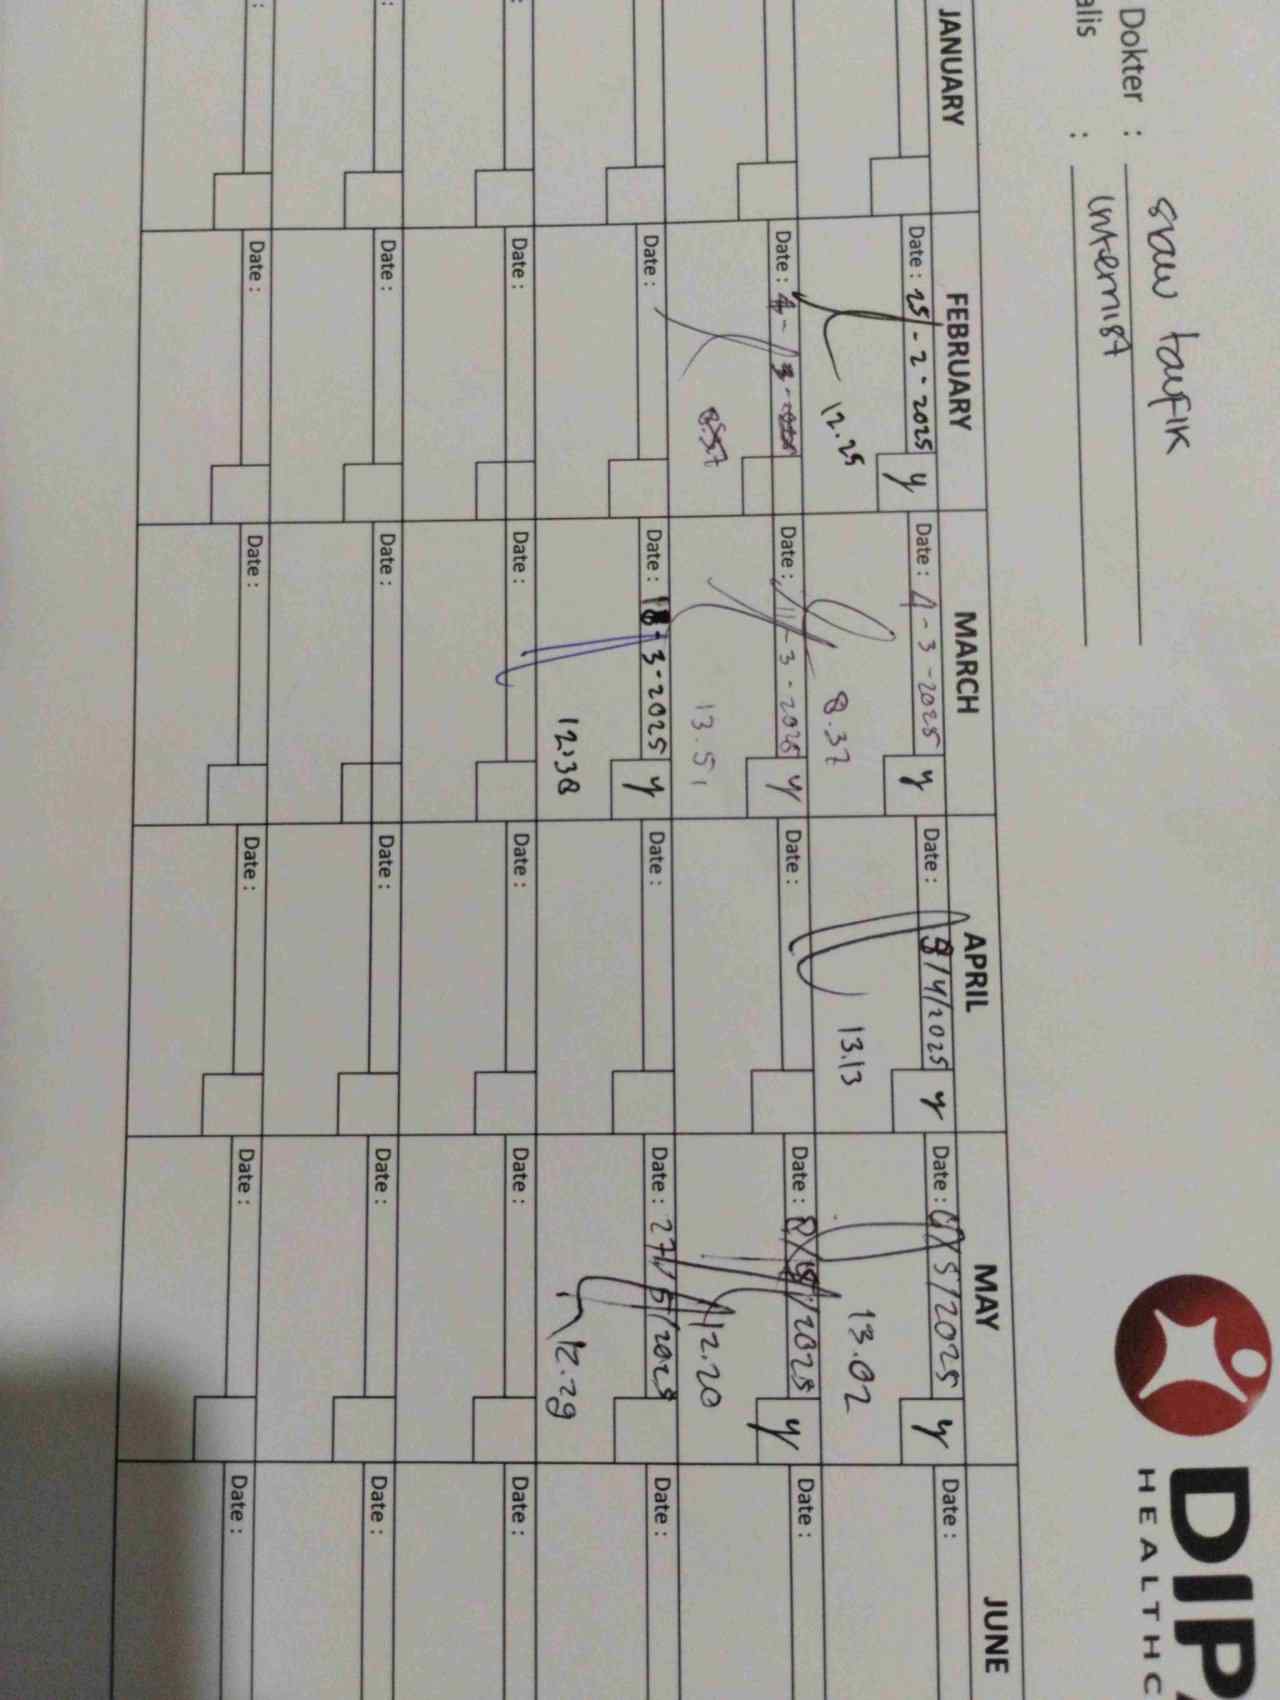 DIPA
HEALTHC
Dokter : siaw taufik
alis : Internist
JANUARY FEBRUARY MARCH APRIL MAY JUNE
Date : 25 - 2 - 2025 y Date : 4 - 3 - 2025 y Date : 8/4/2025 y Date : 5/2025 y Date :
12.25 8.37 13.13 13.02
Date : 4 - 3 - Date : 11 - 3 - 2025 y Date : Date : /2025 y Date :
8.37 13.51 12.20
: Date : Date : 18 - 3 - 2025 y Date : Date : 27/5/2025 Date :
12:38 12.29
: Date : Date : Date : Date : Date :
: Date : Date : Date : Date : Date :
: Date : Date : Date : Date : Date :